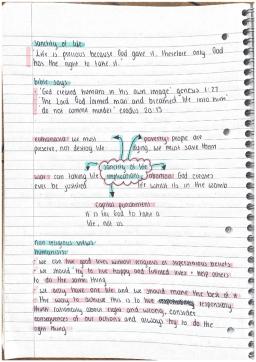 sanctity of life
'Life is precious because God gave it, therefore only God
has the right to take it.'
bible says
· 'God created humans in his own image' genesis 1:27
· 'The Lord God formed man and breathed life into him'
· 'do not commit murder' exodus 20:13
euthanasia: we must
preserve, not destroy life
poverty: people are
dying, we must save them
sanctity of life
implications
war: can taking life
ever be justified
abortion: God creates
life when its in the womb
capital punishment
it is for God to take a
life, not us
non religious views
humanism:
· we can live good lives without religious or superstitious beliefs
· we should try to live happy and fulfilled lives + help others
to do the same thing
· we only have one life and we should make the best of it
· the way to achieve this is to live responsibly,
think rationally about right and wrong, consider
consequences of our actions and always try to do the
right thing